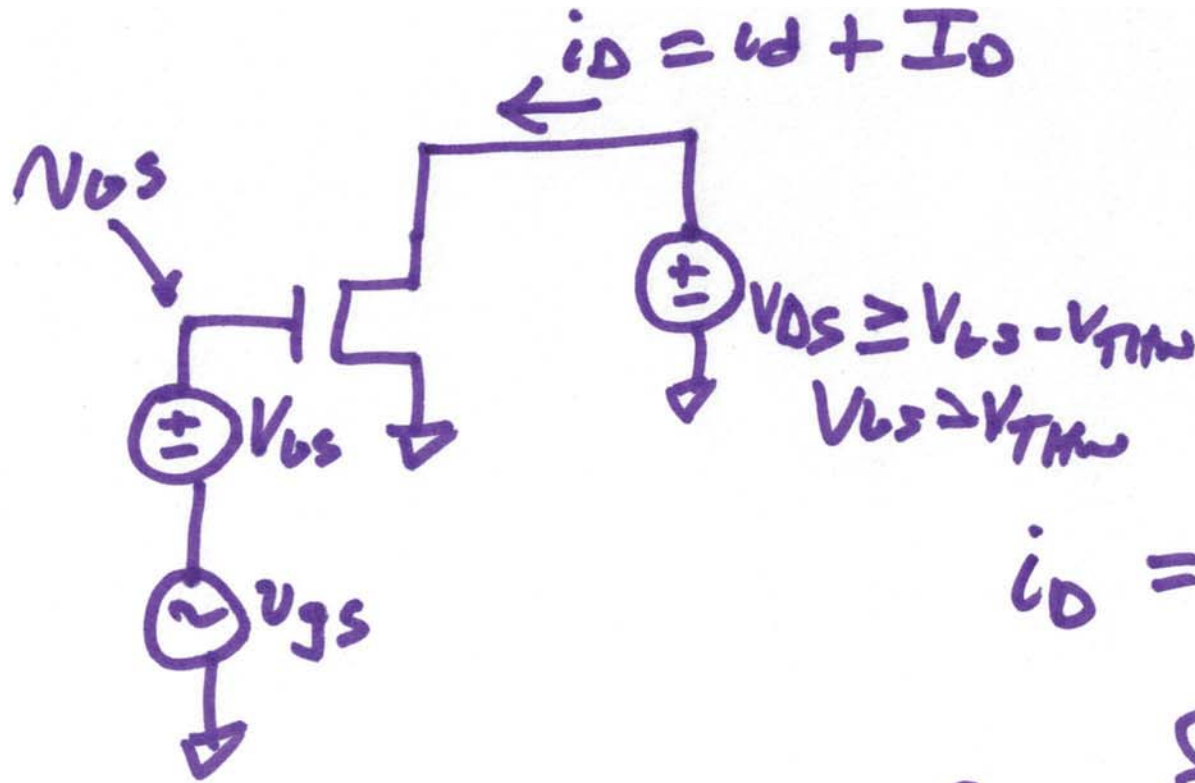 iD = id + ID
vGS
VDS ≥ VGS - VTHN
VGS > VTHN
VGS
vgs
iD =